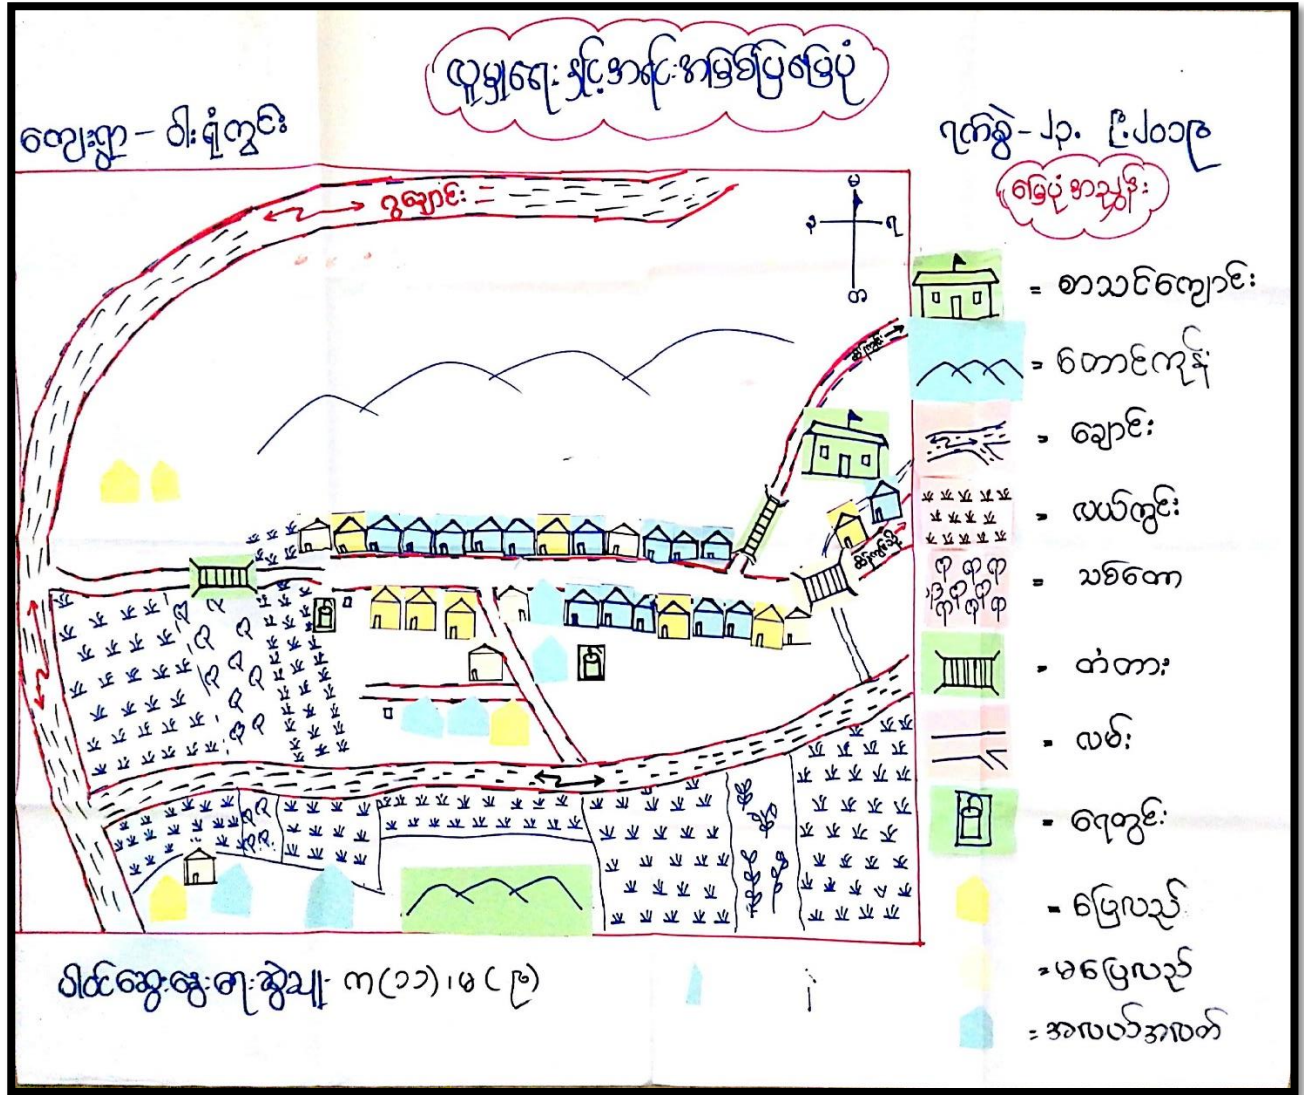 လူမှုရေးနှင့်အရင်းအမြစ်ပြမြေပုံ
ကျေးရွာ - ဝါးရုံကွင်း
ရက်စွဲ - ၂၃. ၆.၂၀၁၉
မြေပုံအညွှန်း
ဂွချောင်း
မ
န
ရ
တ
= စာသင်ကျောင်း
= တောင်ကုန်း
= ချောင်း
= လယ်ကွင်း
= သစ်တော
= တံတား
= လမ်း
= ရေတွင်း
= ပြေလည်
= မပြေလည်
= အလယ်အလတ်
ပါဝင်ဆွေးနွေးရေးဆွဲသူ - က (၁၁) ၊ မ (၉)